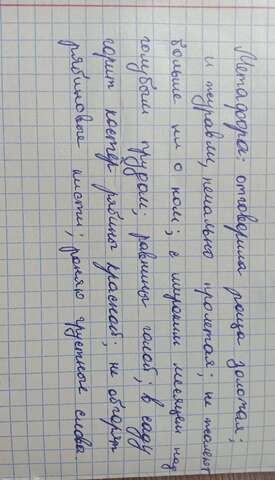 Метафора: отговорила роща золотая;
и журавли, печально пролетая; не жалеют
больше ни о ком; с широким месяцем над
голубым прудом; равнины голой; в саду
горит костер рябины красной; не обгорят
рябиновые кисти; роняю грустные слова